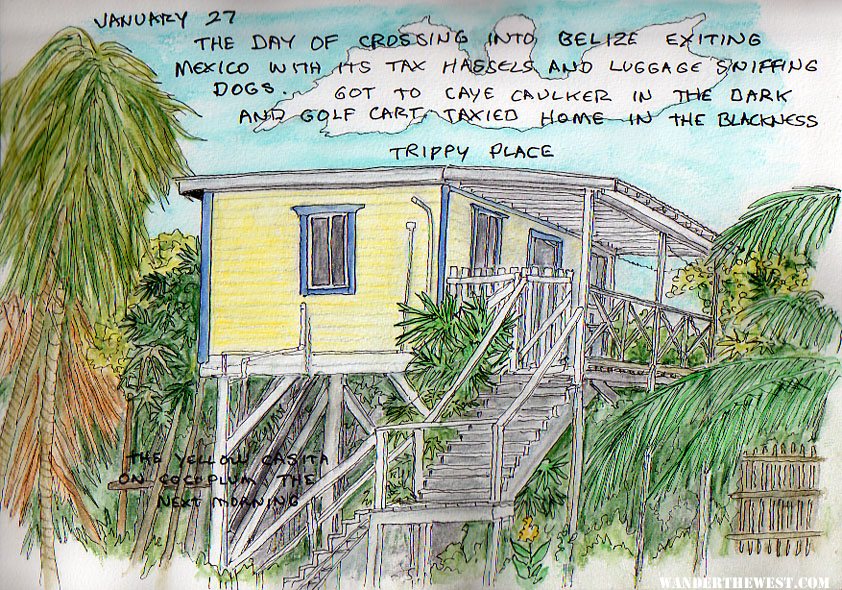 JANUARY 27
THE DAY OF CROSSING INTO BELIZE EXITING
MEXICO WITH ITS TAX HASSELS AND LUGGAGE SNIFFING
DOGS. GOT TO CAYE CAULKER IN THE DARK
AND GOLF CART TAXIED HOME IN THE BLACKNESS
TRIPPY PLACE
THE YELLOW CASITA
ON COCOPLUM THE
NEXT MORNING
WANDERTHEWEST.COM